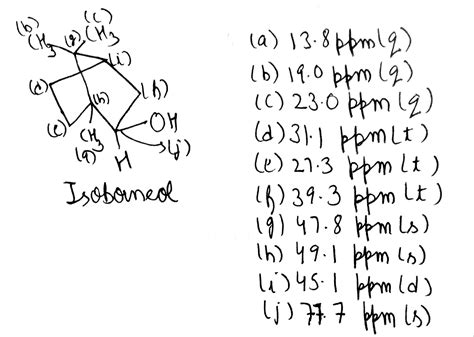 (b) (c)
CH3 CH3
(g)
(i)
(d)
(h)
(f)
(e)
CH3
(a)
OH
(j)
H
Isoborneol
(a) 13.8 ppm (q)
(b) 19.0 ppm (q)
(c) 23.0 ppm (q)
(d) 31.1 ppm (t)
(e) 27.3 ppm (t)
(f) 39.3 ppm (t)
(g) 47.8 ppm (s)
(h) 49.1 ppm (s)
(i) 45.1 ppm (d)
(j) 77.7 ppm (s)